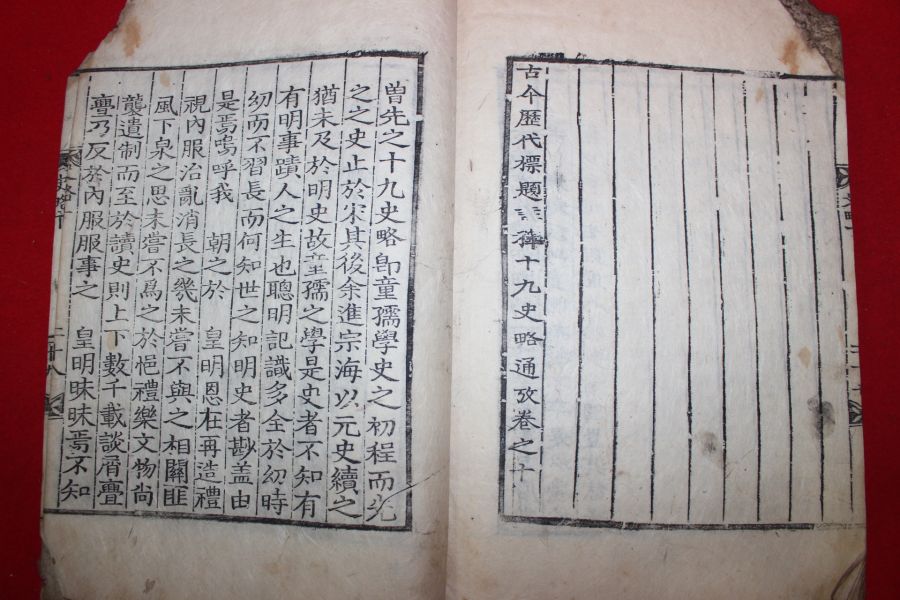 古今歷代標題註釋十九史略通攷卷之十
曾先之十九史略卽童孺學史之初程而先
之之史止於宋其後余進宗海以元史續之
猶未及於明史故童孺之學是史者不知有
有明事蹟人之生也聰明記識多全於幼時
幼而不習長而何知世之知明史者尠盖由
是焉嗚呼我 朝之於 皇明恩在再造禮
視內服治亂消長之幾未嘗不與之相關匪
風下泉之思未嘗不爲之於悒禮樂文物尚
襲遺制而至於讀史則上下數千載談屑亹
亹乃反於內服服事之 皇明昧昧焉不知
二十八